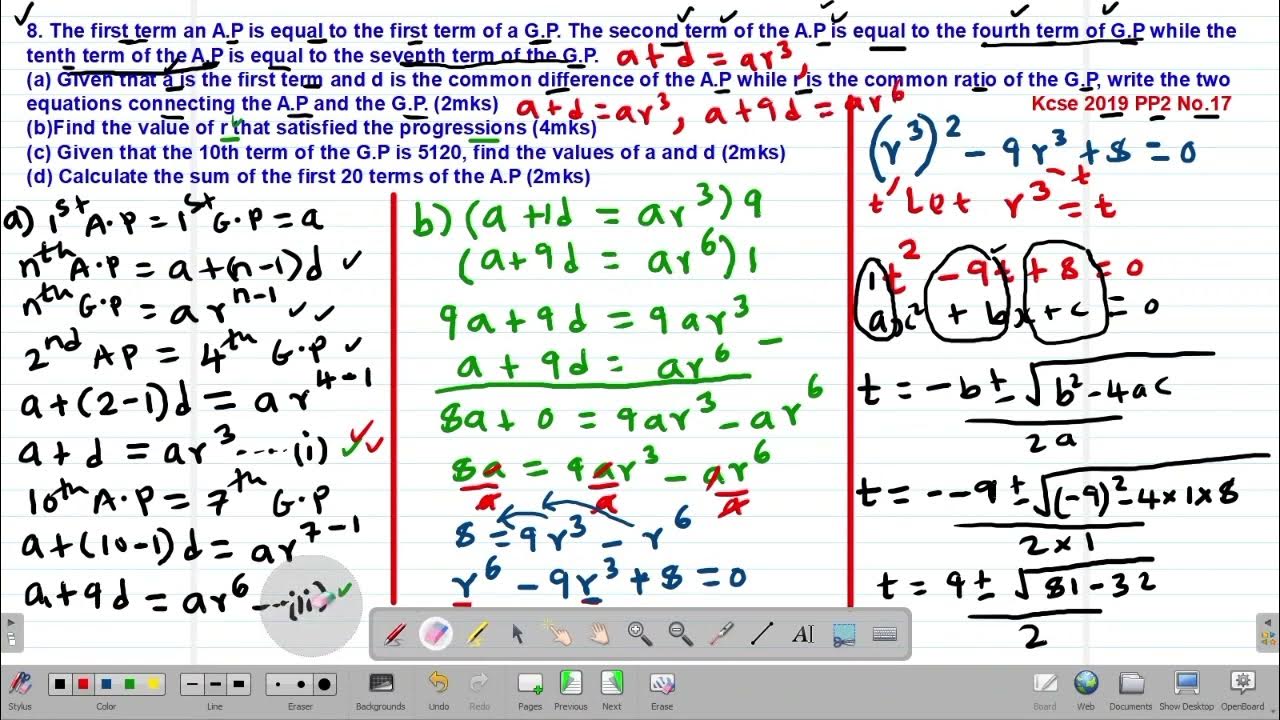 8. The first term an A.P is equal to the first term of a G.P. The second term of the A.P is equal to the fourth term of G.P while the
tenth term of the A.P is equal to the seventh term of the G.P.
a + d = ar³,
(a) Given that a is the first term and d is the common difference of the A.P while r is the common ratio of the G.P, write the two
equations connecting the A.P and the G.P. (2mks)
a + d = ar³, a + 9d = ar⁶
Kcse 2019 PP2 No.17
(b)Find the value of r that satisfied the progressions (4mks)
(c) Given that the 10th term of the G.P is 5120, find the values of a and d (2mks)
(d) Calculate the sum of the first 20 terms of the A.P (2mks)
a) 1st A.P = 1st G.P = a
nth A.P = a + (n-1)d
nth G.P = ar^(n-1)
2nd AP = 4th G.P
a + (2-1)d = ar^(4-1)
a + d = ar³ ----- (i)
10th A.P = 7th G.P
a + (10-1)d = ar^(7-1)
a + 9d = ar⁶ ---(ii)
b) (a + 1d = ar³) 9
(a + 9d = ar⁶) 1
9a + 9d = 9ar³
a + 9d = ar⁶ −
8a + 0 = 9ar³ - ar⁶
8a = 9ar³ - ar⁶
a a a
8 = 9r³ - r⁶
r⁶ - 9r³ + 8 = 0
(r³)² - 9r³ + 8 = 0
t
t' Let r³ = t
1t² - 9t + 8 = 0
ax² + bx + c = 0
t = -b ± √b² - 4ac
2a
t = --9 ± √(-9)² - 4×1×8
2×1
t = 9 ± √81 - 32
2
Stylus
Color
Line
Eraser
Backgrounds
Undo
Redo
Pages
Previous
Next
Erase
Board
Web
Documents
Show Desktop
OpenBoard